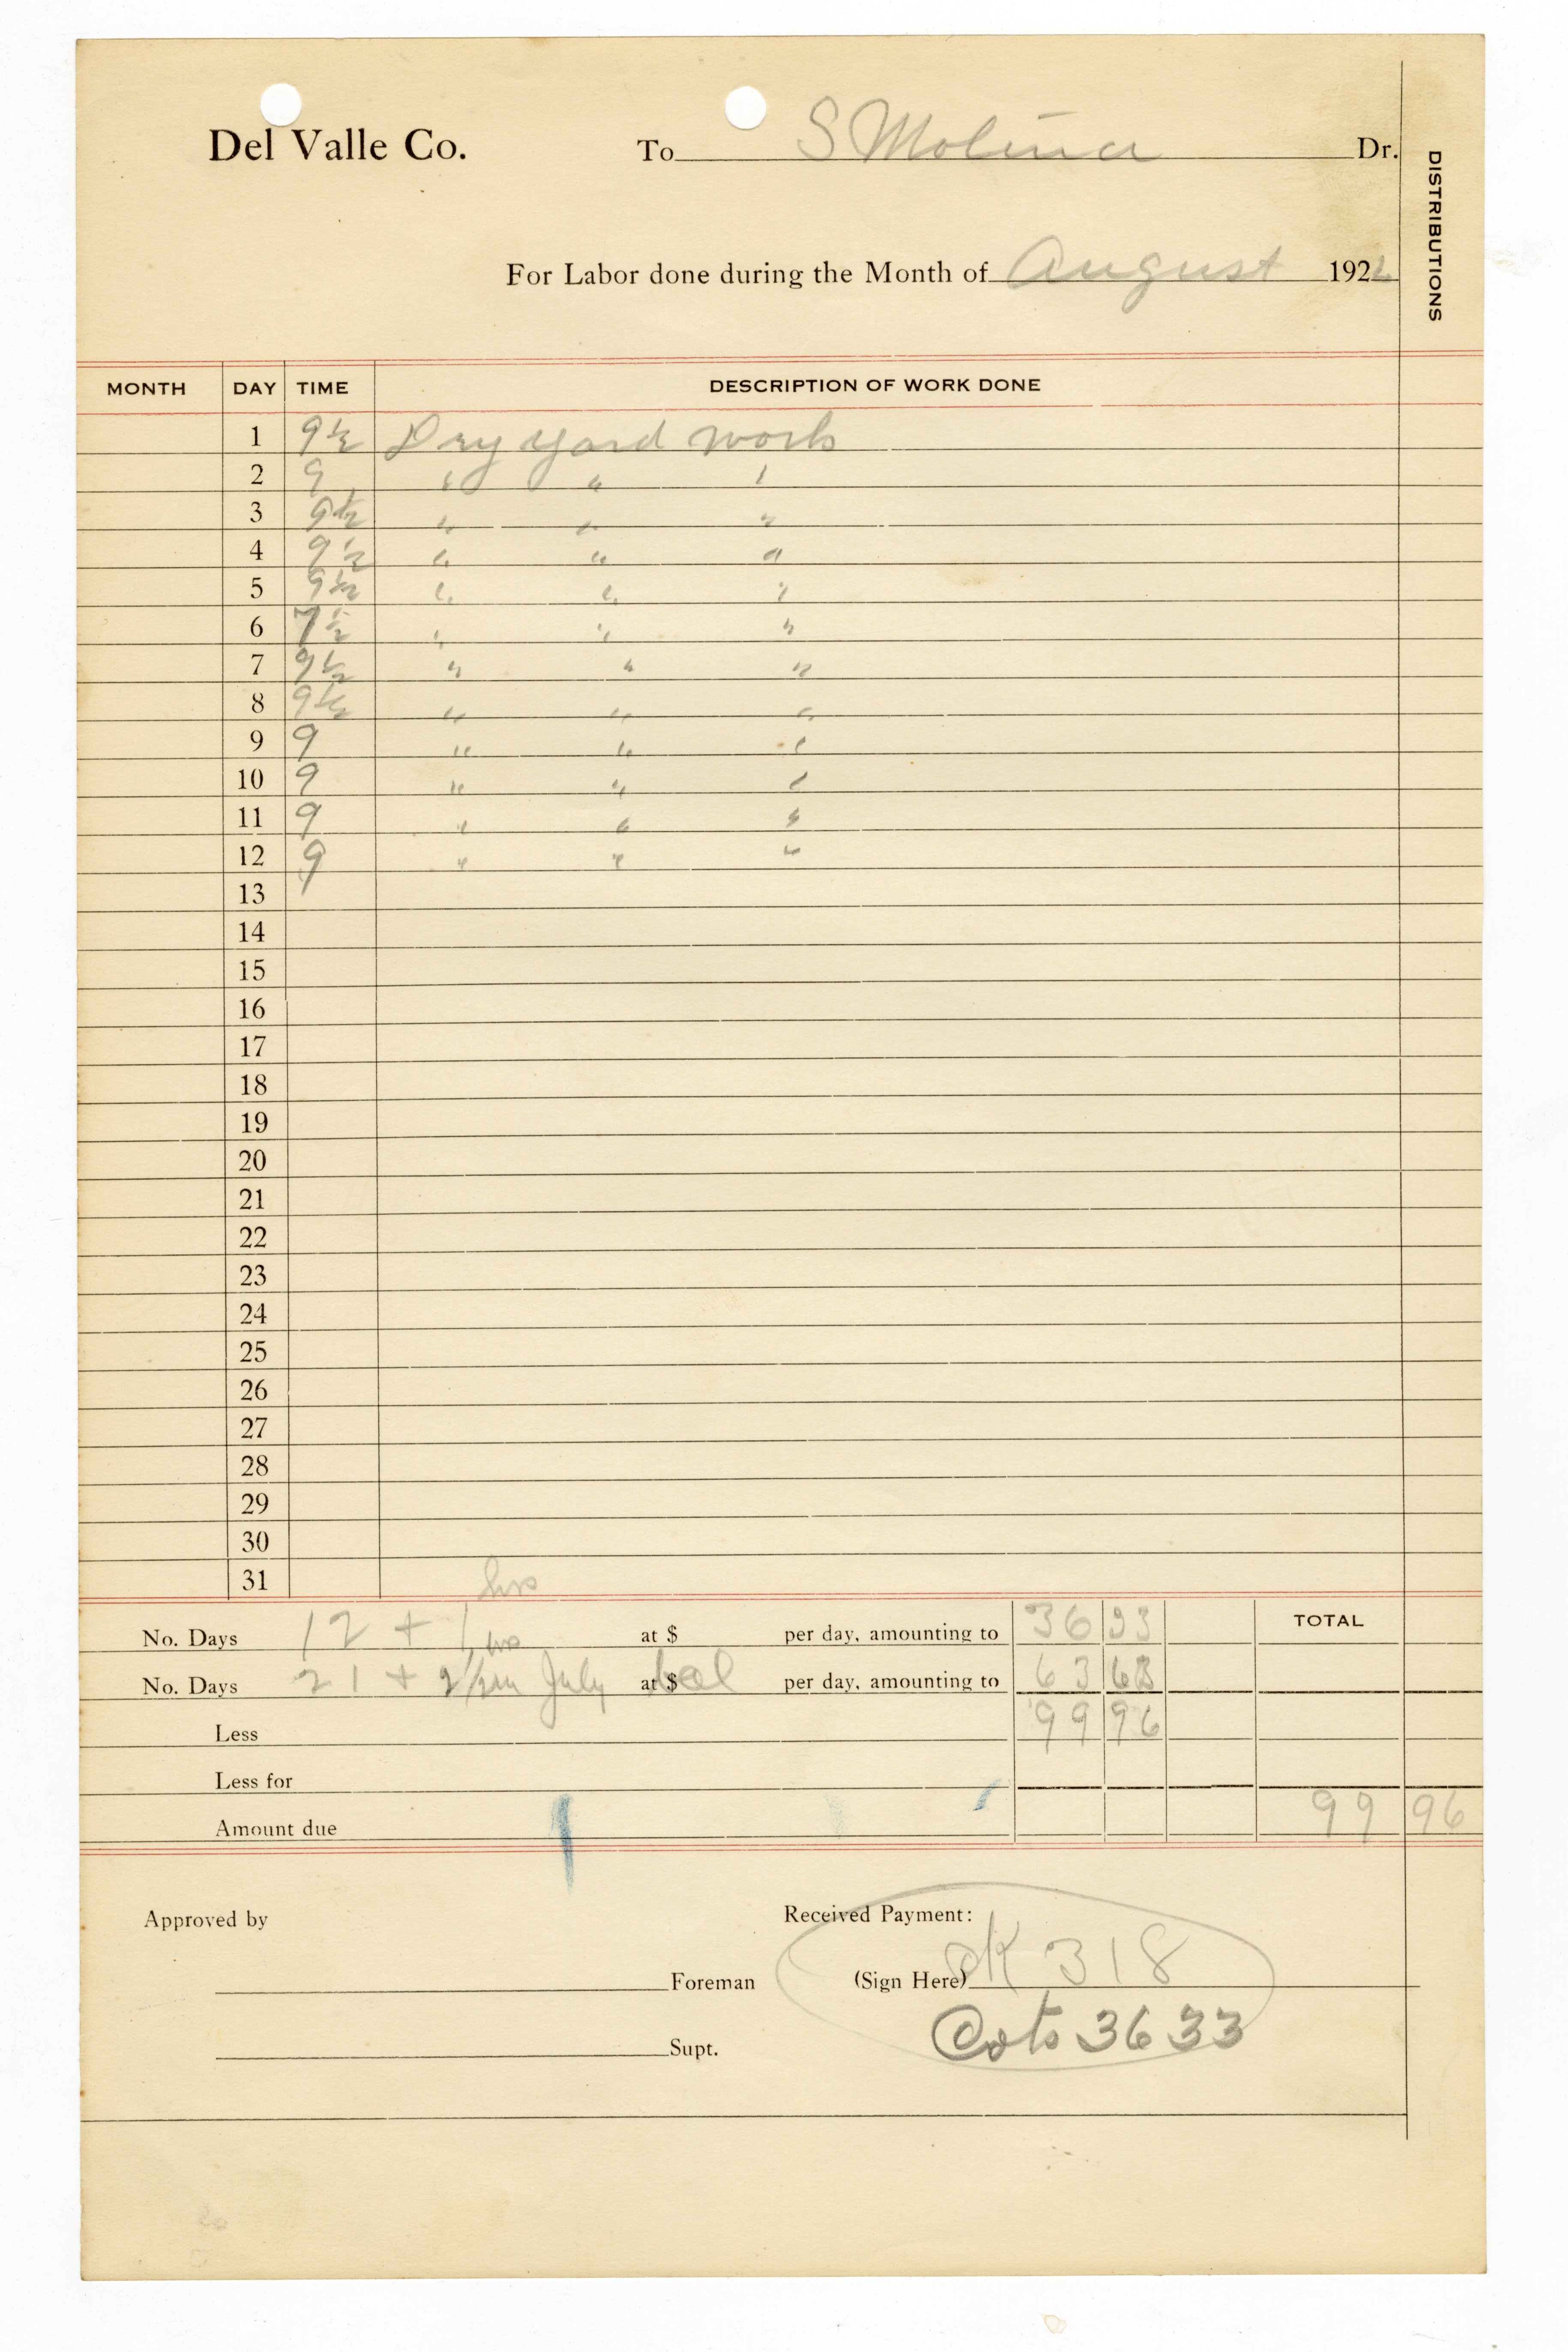 Del Valle Co. To S Molina Dr.
DISTRIBUTIONS
For Labor done during the Month of August 1922
MONTH DAY TIME DESCRIPTION OF WORK DONE
1 9½ Dry yard work
2 9 " " "
3 9½ " " "
4 9½ " " "
5 9½ " " "
6 7½ " " "
7 9½ " " "
8 9½ " " "
9 9 " " "
10 9 " " "
11 9 " " "
12 9 " " "
13
14
15
16
17
18
19
20
21
22
23
24
25
26
27
28
29
30
31
hrs
No. Days 12 + 1 hrs at $ per day, amounting to 36 33 TOTAL
No. Days 21 + 2½ in July bal at $ per day, amounting to 63 63
Less 99 96
Less for
Amount due 99 96
Approved by Received Payment:
Foreman (Sign Here) OK 318
Supt. Cots 36 33